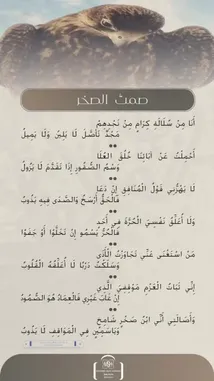 صمت الصخر
أَنَا مِنْ سُلَالَةِ كِرَامٍ مِنْ نَجْدِهِمْ
مَجْدٌ تَأَصَّلَ لَا يَلِينُ وَلَا يَمِيلُ
**
أَخَذْتُ عَنْ آبَائِنَا خُلُقَ العُلَا
وَسْمُ الصُّقُورِ إِذَا تَقَدَّمَ لَا يَزُولُ
**
لَا يَهُزُّنِي قَوْلُ المُنَافِقِ إِنْ دَعَا
فَالحَقُّ أَرْسَخُ وَالصَّدَى فِيهِ يَذُوبُ
**
وَلَا أُعَلِّقُ نَفْسِيَ الحُرَّةَ فِي أَحَدٍ
فَالحُرُّ يَسْمُو إِنْ تَخَلَّوْا أَوْ جَفَوْا
**
مَنِ اسْتَغْنَى عَنِّي تَجَاوَزْتُ الأَذَى
وَسَلَكْتُ دَرْبًا لَا تُعَلِّقُهُ القُلُوبُ
**
إِنِّي ثَبَاتُ العَزْمِ مَوْقِفِيَ الَّذِي
إِنْ غَابَ غَيْرِي فَالعِمَادُ هُوَ الصُّمُودُ
**
وَأَصَالَتِي أَنِّي ابْنُ صَخْرٍ شَامِخٍ
وَيَاسَمِينٍ فِي المَوَاقِفِ لَا يَذُوبُ